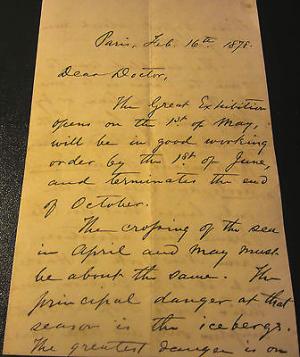 Paris, Feb. 16th 1878.
Dear Doctor,
The Great Exhibition
opens on the 1st of May,
will be in good working
order by the 1st of June,
and terminates the end
of October.
The crossing of the sea
in April and May must
be about the same. The
principal danger at that
season is the icebergs.
The greatest danger is on